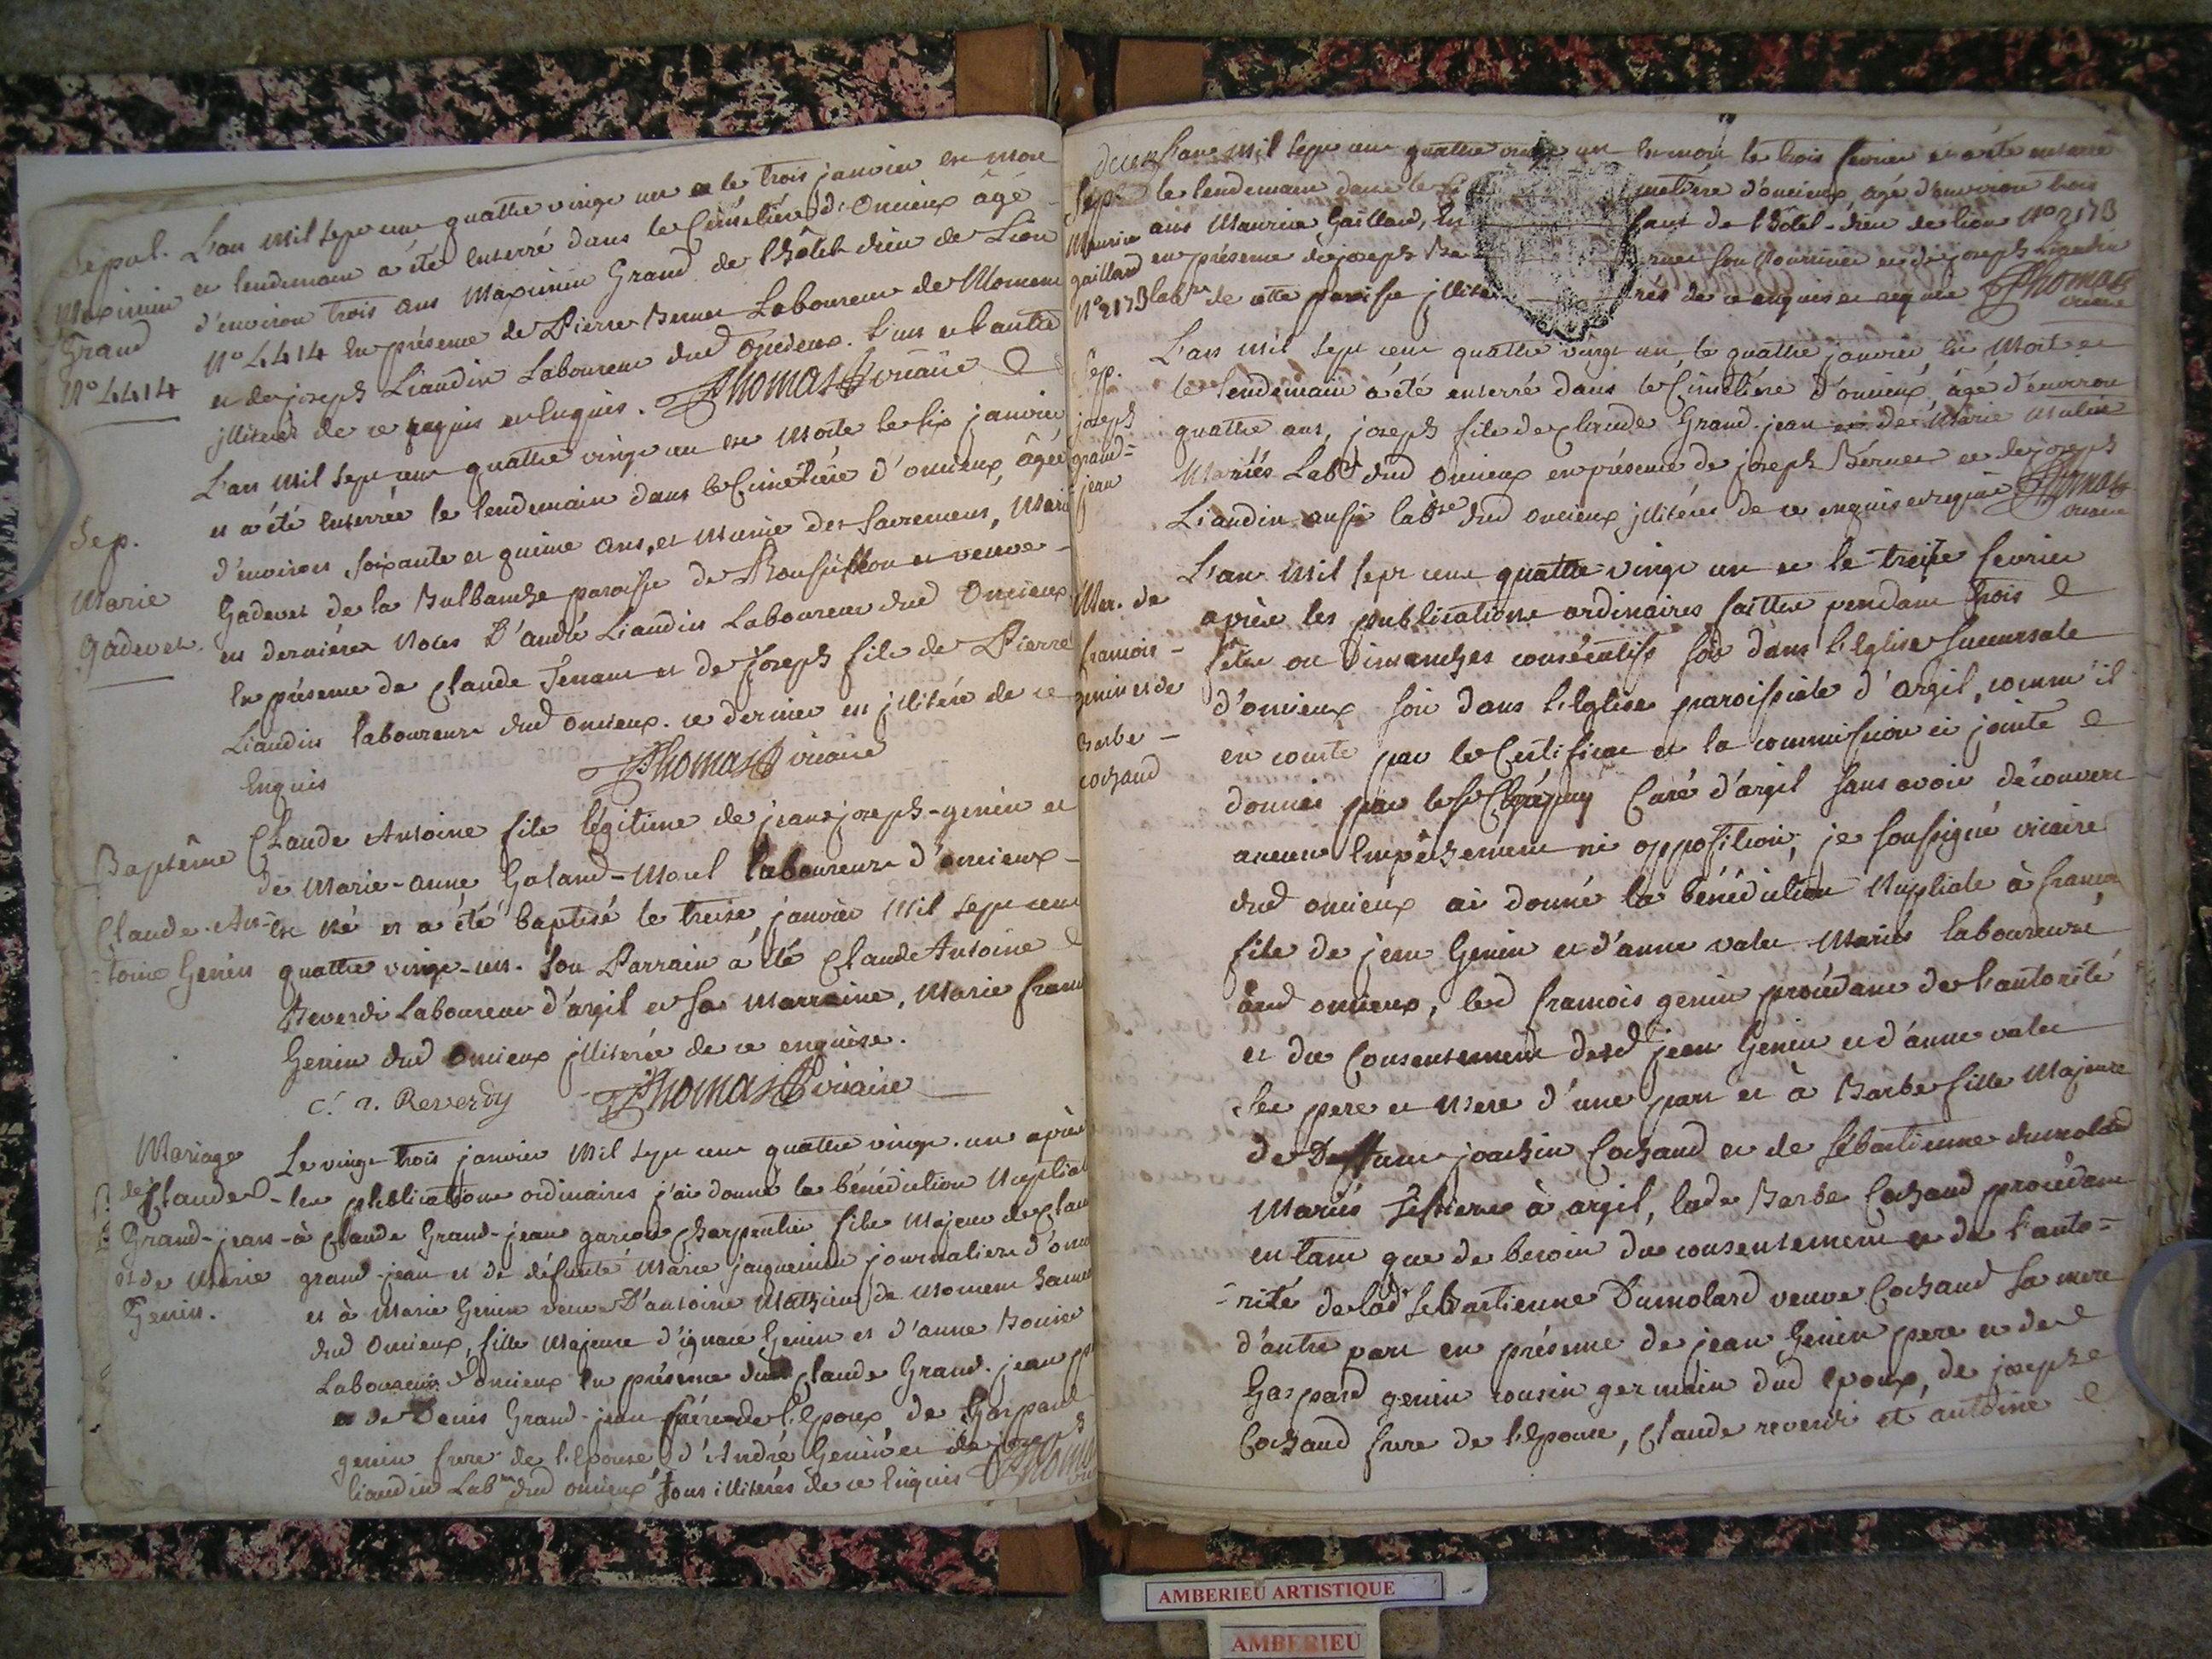 Sepul.
Maximin
Grand
N° 4414
L'an mil sept cent quattre vingt un et le trois janvier est mort
et lendemain a été enterré dans le Cimetière d'Oncieux âgé
d'environ trois ans Maximin Grand de l'hôtel dieu de Lion
N° 4414 en présence de Pierre Berner Laboureur de Moment
et de joseph Liaudin Laboureur dud Oncieux. l'un et l'autre
illiterés de ce requis et enquis. Thomas vicaire
Sep.
Marie
Gadevet.
L'an mil sept cent quattre vingt un est morte le six janvier
et a été enterrée le lendemain dans le Cimetière d'oncieux âgée
d'environ soixante et quinze ans, et munie des sacremens, Marie
Gadevet de la Bulbanche paroisse de Rousillon et veuve
en dernières noces D'André Liaudin Laboureur dud Oncieux
en présence de Claude Tenant et de Joseph fils de Pierre
Liaudin laboureurs dud oncieux. ce dernier est illitéré de ce
enquis Thomas vicaire
Baptême
Claude-An-
-toine Genin
Claude Antoine fils légitime de jean joseph-genin et
de Marie-anne Galand-Morel laboureurs d'oncieux
est né et a été baptisé le treize janvier mil sept cent
quattre vingt-un. son Parrain a été Claude Antoine
Reverdi Laboureur d'argil et sa Marraine, Marie fran
Genin dud Oncieux illiterée de ce enquise.
C. a. Reverdy Thomas vicaire
Mariage
de Claude
Grand-jean
et de Marie
Genin.
Le vingt trois janvier mil sept cent quattre vingt-un après
les publications ordinaires j'ai donné la bénédiction Nuptial
à Claude Grand-jean garçon Charpentier fils majeur de Clau
grand-jean et de défunte Marie jacquemin journaliers d'on
et à Marie Genin veuve D'antoine Mathieu de Moment
dud Oncieux, fille majeure d'ignace Genin et d'anne Bouvier
Laboureurs d'oncieux en présence dud Claude Grand-jean
et de Denis Grand-jean frère de l'Epoux, de Gaspard
genin frere de l'Epouse, d'André Genin et de joseph
liaudin Lab.rs dud oncieux tous illiterés de ce Enquis Thomas
deux
Sep.
Maurice
gaillard
N° 2173
L'an mil sept cent quattre vingt un est mort le trois fevrier et a été enterré
le lendemain dans le Ci metière d'oncieux, agé d'environ trois
ans Maurice Gaillard, En fant de l'Hôtel-dieu de lion N° 2173
en présence de joseph Be rner son Nourricier et de joseph Liaudin
labrs de cette paroisse illité rés de ce enquis et requis Thomas vicaire
Sep.
joseph
grand=
jean
L'an mil sept cent quattre vingt un le quattre janvier est Mort et
le lendemain a été enterré dans le Cimetière d'oncieux, âgé d'environ
quattre ans, joseph fils de Claude Grand-jean et de Marie
Mariés Labrs dud oncieux en présence de joseph Berner et de joseph
Liaudin aussi labrs dud oncieux illitérés de ce enquis et requis Thomas vicaire
Mar. de
francois
genin et de
Barbe
cochand
L'an mil sept cent quattre vingt un et le treize fevrier
après les publications ordinaires faittes pendant trois
fêtes ou Dimanches consécutifs soit dans l'Eglise succursale
d'oncieux soit dans l'Eglise paroissiale d'argil, comm'il
en conste par le Certificat et la commission ci jointe
donnés par le Sr Curé d'argil sans avoir découvert
aucun Empêchement ni opposition; je soussigné vicaire
dud oncieux ai donné la bénédiction Nuptiale à francois
fils de jean Genin et d'anne valer Mariés laboureurs
aud oncieux, led francois genin procédant de l'autorité
et du Consentement desd jean Genin et d'anne valer
ses pere et mere d'une part et à Barbe fille Majeure
de Deffunt joachin Cochand et de Sébastienne dumolard
Mariés à argil, lade Barbe Cochand procédant
en tant que de besoin du consentement et de l'auto=
=rité de lad Sébastienne Dumolard veuve Cochand sa mere
d'autre part en présence de jean Genin pere et de
Gaspard genin cousin germain dud Epoux, de joseph
Cochand frere de l'Epouse, Claude reverdi et antoine
AMBERIEU ARTISTIQUE
AMBERIEU